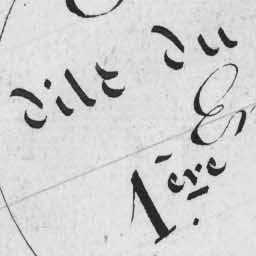 dite du
1ère